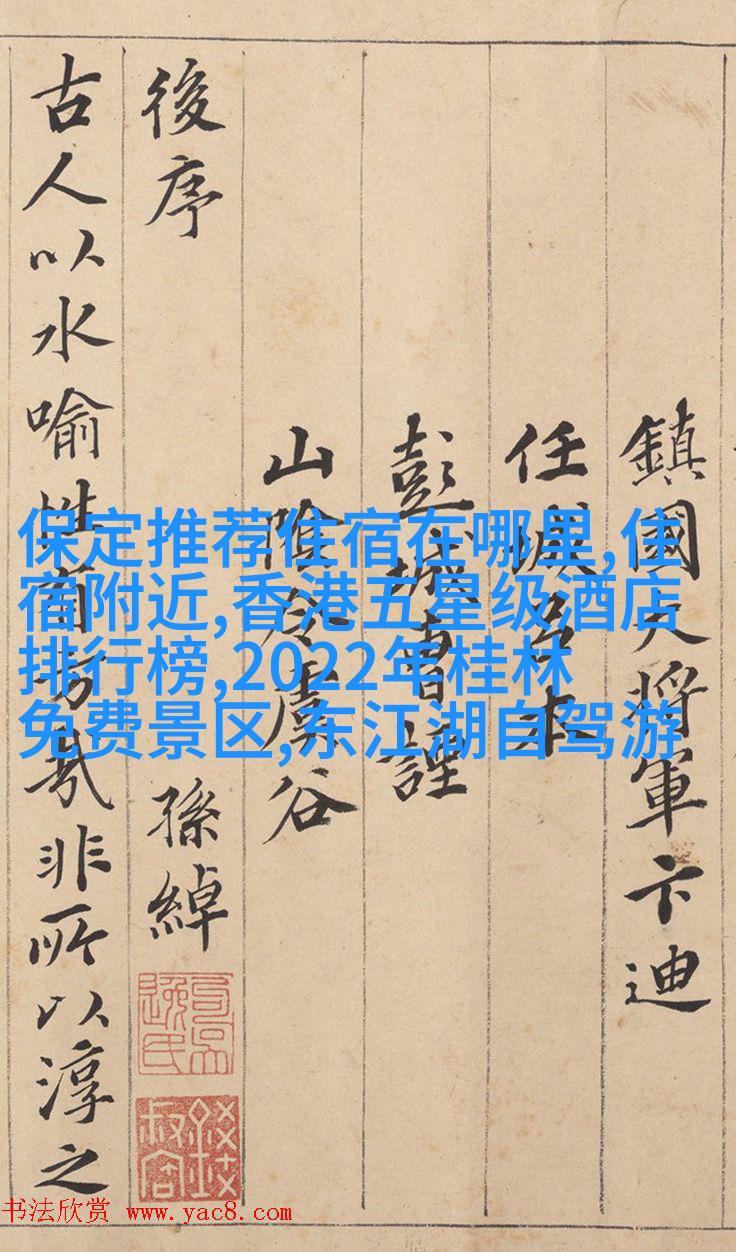 鎮國大將軍卞迪
任城呂本
彭城曹諲
山陰令虞谷
後序 孫綽
古人以水喻性有旨哉非所以淳之
保定推荐住宿在哪里,住
宿附近,香港五星级酒店
排行榜,2022年桂林
免费景区,东江湖自驾游
书法欣赏 www.yac8.com